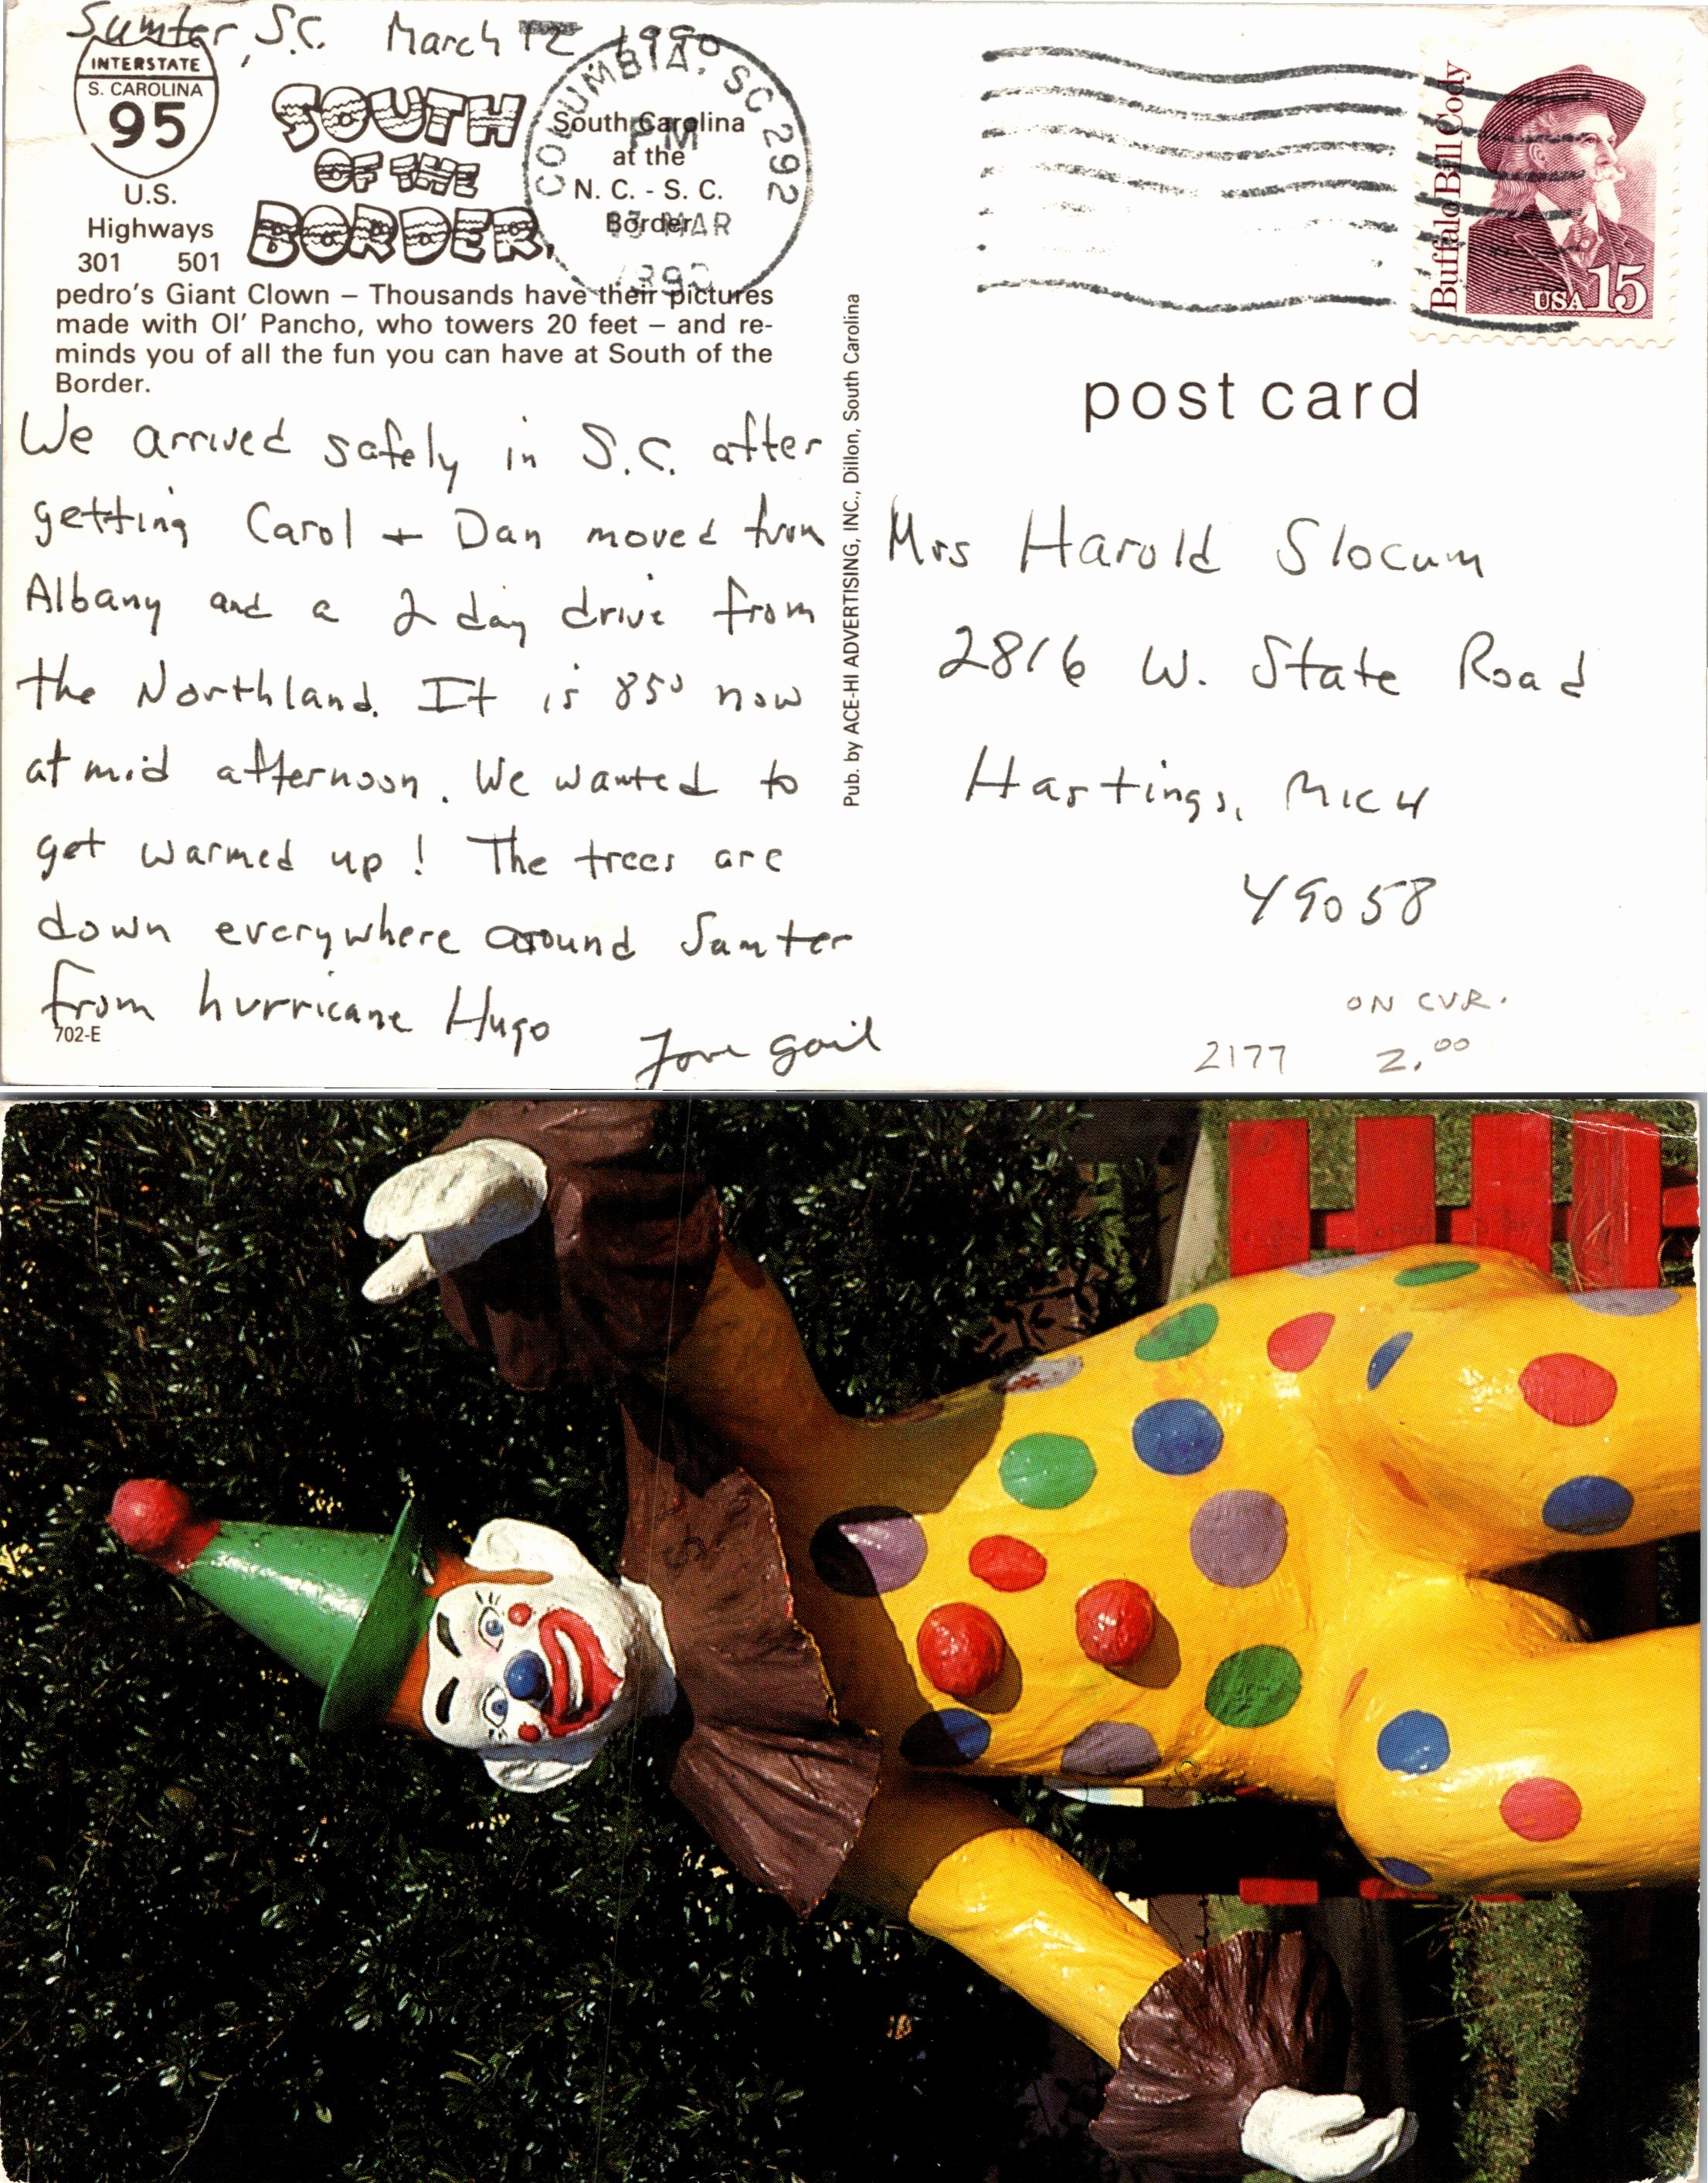 Sumter, S.C. March 12 1990
INTERSTATE
S. CAROLINA
95
U.S.
Highways
301 501
SOUTH
OF THE
BORDER
South Carolina
at the
N. C. - S. C.
Border
COLUMBIA, SC 292
PM
13 MAR
1990
Buffalo Bill Cody
USA 15
pedro's Giant Clown – Thousands have their pictures
made with Ol' Pancho, who towers 20 feet – and re-
minds you of all the fun you can have at South of the
Border.
We arrived safely in S.C. after
getting Carol + Dan moved from
Albany and a 2 day drive from
the Northland. It is 85° now
at mid afternoon. We wanted to
get warmed up! The trees are
down everywhere around Sumter
from hurricane Hugo
Love Gail
702-E
Pub. by ACE-HI ADVERTISING, INC., Dillon, South Carolina
post card
Mrs Harold Slocum
2816 W. State Road
Hastings, MICH
49058
ON CVR.
2177 2.00